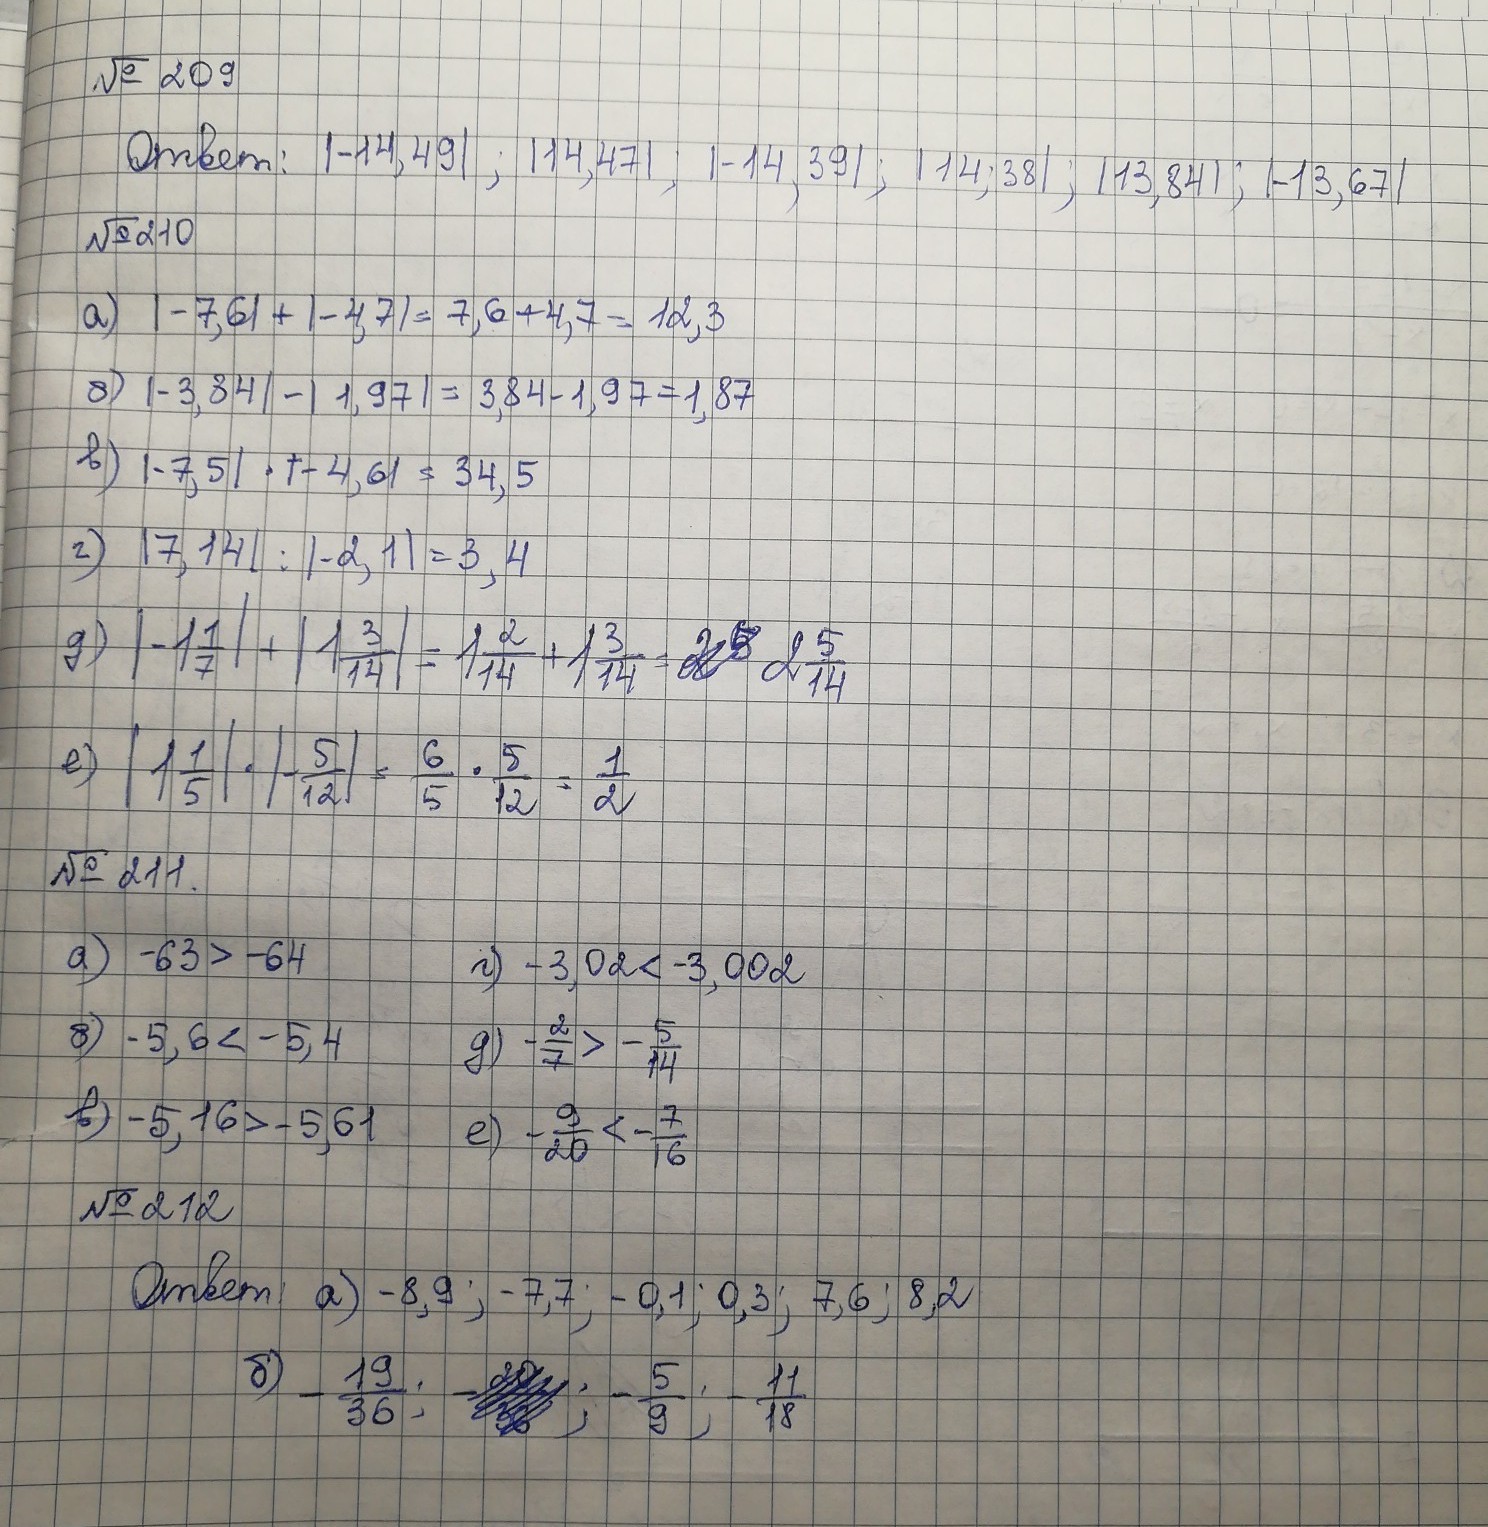 № 209
Ответ: |-14,49| ; |14,47| ; |-14,39| ; |14,38| ; |13,84| ; |-13,67|
№ 210
а) |-7,6| + |-4,7| = 7,6 + 4,7 = 12,3
б) |-3,84| - |1,97| = 3,84 - 1,97 = 1,87
в) |-7,5| · |-4,6| = 34,5
г) |7,14| : |-2,1| = 3,4
д) |-1 1/7| + |1 3/14| = 1 2/14 + 1 3/14 = 2 5/14
е) |1 1/5| · |-5/12| = 6/5 · 5/12 = 1/2
№ 211.
а) -63 > -64 г) -3,02 < -3,002
б) -5,6 < -5,4 д) -2/7 > -5/14
в) -5,16 > -5,61 е) -9/20 < -7/16
№ 212
Ответ: а) -8,9 ; -7,7 ; -0,1 ; 0,3 ; 7,6 ; 8,2
б) -19/36 ; ; -5/9 ; -11/18